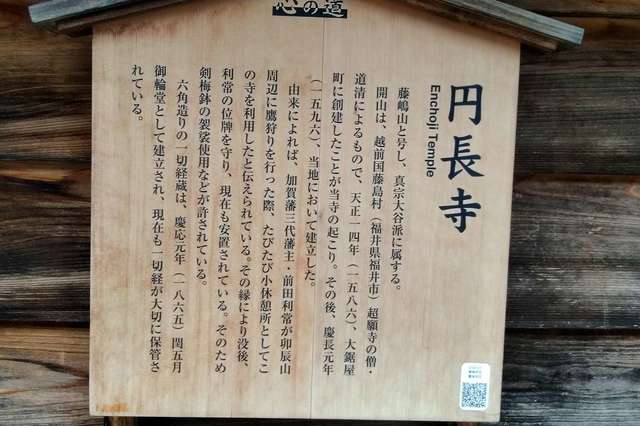 心の道
円長寺
Enchoji Temple
藤嶋山と号し、真宗大谷派に属する。
開山は、越前国藤島村（福井県福井市）超願寺の僧・
道清によるもので、天正一四年（一五八六）、大鋸屋
町に創建したことが当寺の起こり。その後、慶長元年
（一五九六）、当地において建立した。
由来によれば、加賀藩三代藩主・前田利常が卯辰山
周辺に鷹狩りを行った際、たびたび小休憩所としてこ
の寺を利用したと伝えられている。その縁により没後、
利常の位牌を守り、現在も安置されている。そのため
剣梅鉢の袈裟使用などが許されている。
六角造りの一切経蔵は、慶応元年（一八六五）閏五月
御輪堂として建立され、現在も一切経が大切に保管さ
れている。